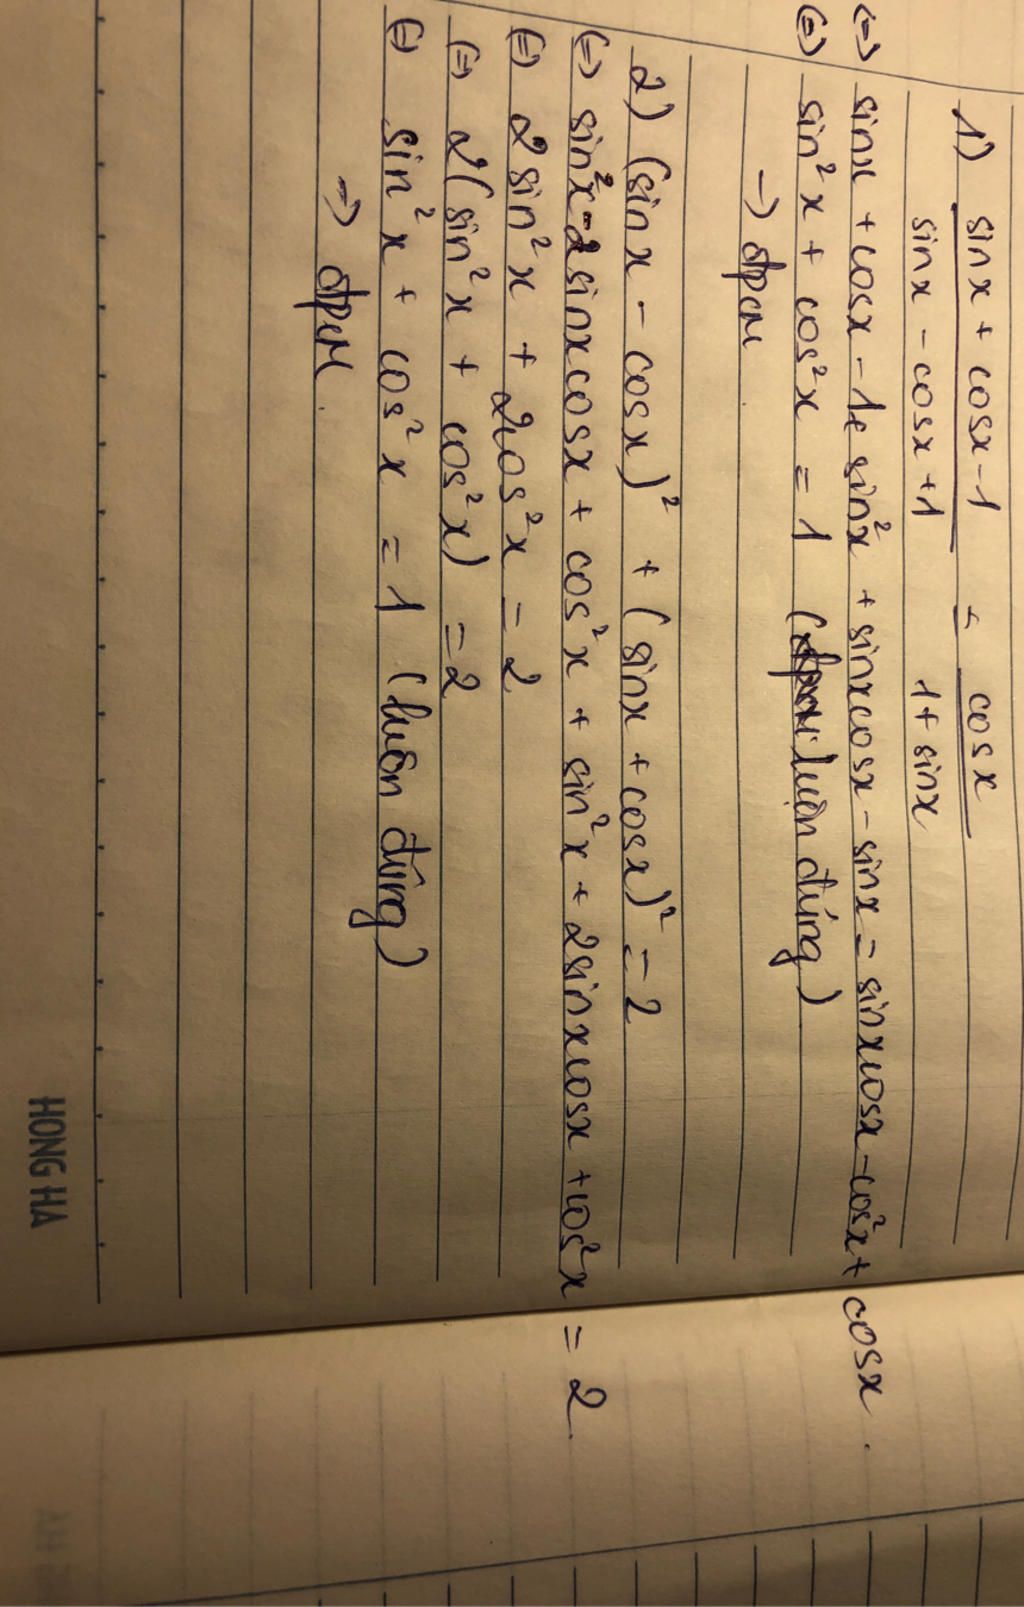 1) sinx + cosx - 1 = cosx
sinx - cosx + 1 1 + sinx
(=) sinx + cosx - 1 + sin²x + sinxcosx - sinx = sinxcosx - cos²x + cosx.
(=) sin²x + cos²x = 1 (luôn đúng)
→ đpcm
2) (sinx - cosx)² + (sinx + cosx)² = 2
(=) sin²x - 2sinxcosx + cos²x + sin²x + 2sinxcosx + cos²x = 2
(=) 2sin²x + 2cos²x = 2
(=) 2(sin²x + cos²x) = 2
(=) sin²x + cos²x = 1 (luôn đúng)
→ đpcm.
HONG HA